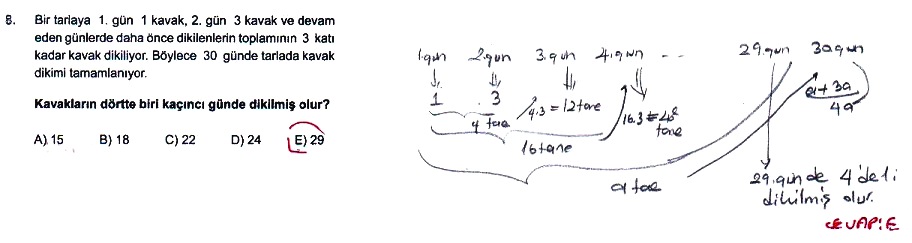 8. Bir tarlaya 1. gün 1 kavak, 2. gün 3 kavak ve devam
eden günlerde daha önce dikilenlerin toplamının 3 katı
kadar kavak dikiliyor. Böylece 30 günde tarlada kavak
dikimi tamamlanıyor.
Kavakların dörtte biri kaçıncı günde dikilmiş olur?
A) 15 B) 18 C) 22 D) 24 E) 29
1.gün 2.gün 3.gün 4.gün -- 29.gün 30.gün
1 3 4.3=12tane 16.3=48 tane
a+3a
4a
4 tane
16tane
a tane
29.günde 4'de1i
dikilmiş olur.
CEVAP:E